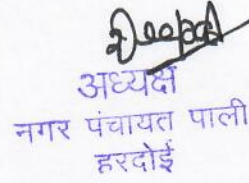 अध्यक्ष
नगर पंचायत पाली
हरदोई